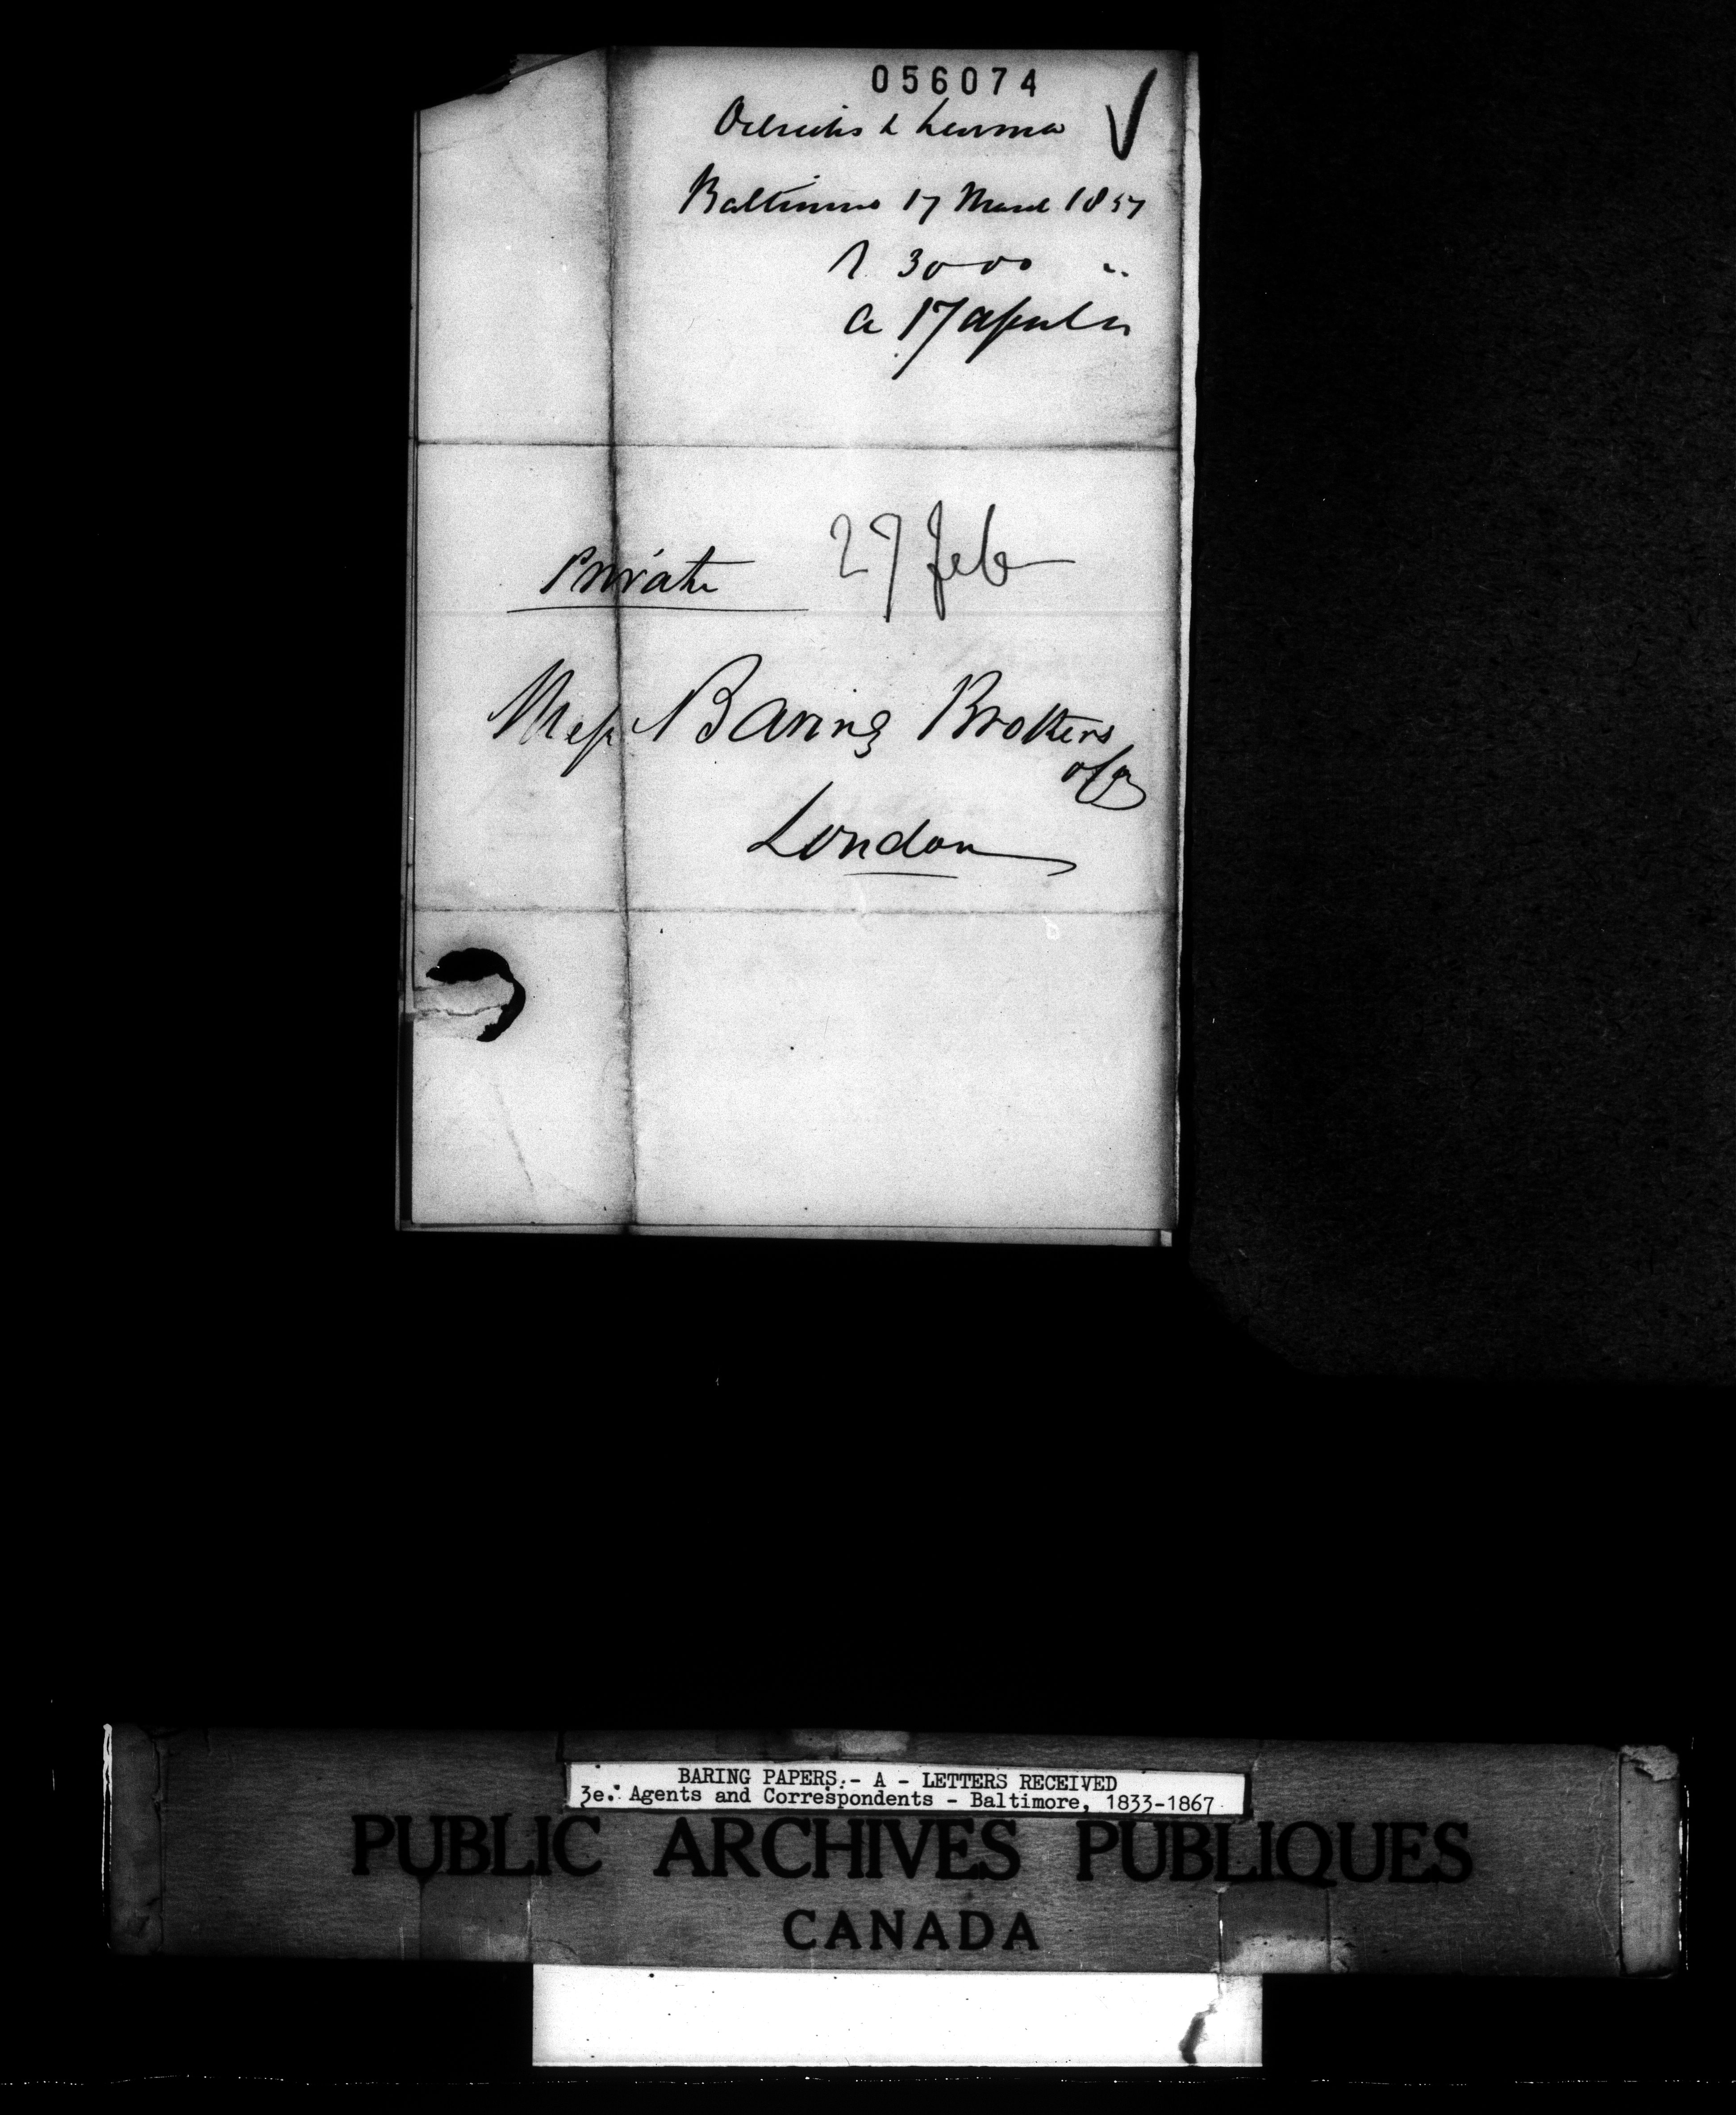 056074
Oelrichs & Lurman
Baltimore 17 March 1857
R 30
A 17 april
27 Feb
Private
Mess Baring Brothers
& Co
London
BARING PAPERS.- A - LETTERS RECEIVED
3e. Agents and Correspondents - Baltimore, 1833-1867
PUBLIC ARCHIVES PUBLIQUES
CANADA